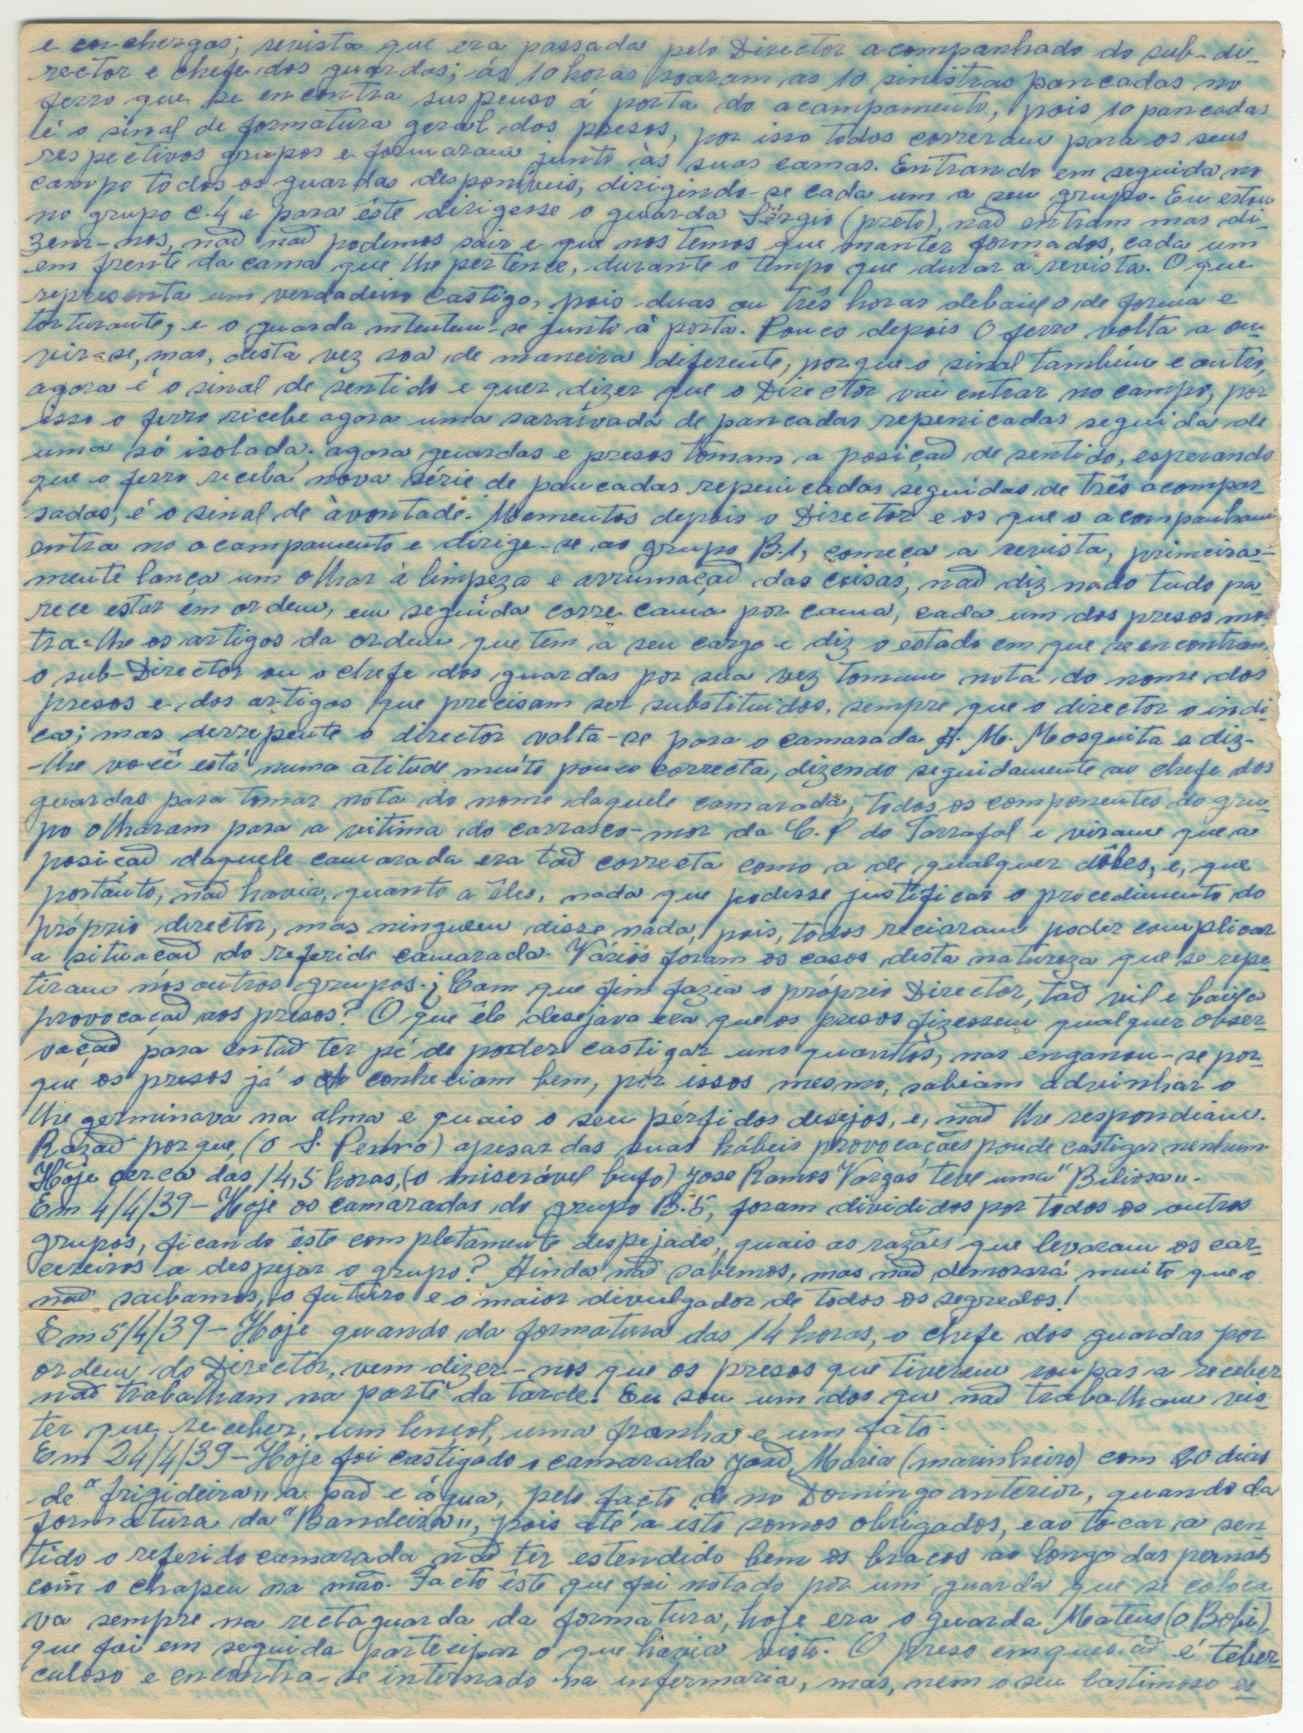 e enchergas; revista que era passada pelo Director acompanhado do sub-di-
rector e chefe dos guardas; ás 10 horas soaram as 10 sinistras pancadas no
ferro que se encontra suspenso á porta do acampamento, pois 10 pancadas
é o sinal de formatura geral dos presos, por isso todos correram para os seus
respectivos grupos e formaram junto às suas camas. Entrando em seguida no
campo todos os guardas desponíveis, dirigindo-se cada um a seu grupo. Eu estou
no grupo C.4 e para éste dirigesse o guarda Sérgio (preto), não entram mas di-
zem-nos, não não podemos sair e que nos temos que manter formados, cada um
em frente da cama que lhe pertence, durante o tempo que durar a revista. O que
representa um verdadeiro castigo, pois duas ou três horas debaixo de forma e
torturante, e o guarda mantem-se junto á porta. Pouco depois O ferro volta a ou-
vir-se, mas, desta vez soa de maneira diferente, porque o sinal tambêm e outro,
agora é o sinal de sentido e quer dizer que o Director vai entrar no campo, por
isso o ferro recebe agora uma saraivada de pancadas repenicadas seguida de
uma só isolada. agora guardas e presos tomam a posição de sentido, esperando
que o ferro receba nova série de pancadas repenicadas seguidas de três acompas-
sadas, é o sinal de àvontade. Momentos depois o Director e os que o acompanham
entra no acampamento e dirige-se ao grupo B.1, começa a revista, primeira-
mente lança um olhar à limpeza e arrumação das coisas, não diz nada tudo pa-
rece estar em ordem, em seguida corre cama por cama, cada um dos presos mos-
tra-lhe os artigos da ordem que tem a seu cargo e diz o estado em que se encontram,
o sub-Director ou o chefe dos guardas por sua vez tomam nota do nome dos
presos e dos artigos que precisam ser substituidos, sempre que o director o indi-
ca; mas derrepente o director volta-se para o camarada A. M. Mosquita e diz-
-lhe você está numa atitude muito pouco correcta, dizendo seguidamente ao chefe dos
guardas para tomar nota do nome daquele camarada, todos os componentes do gru-
po olharam para a vitima do carrasco-mor da C. P do Tarrafal e viram que a
posição daquele camarada era tão correcta como a de qualquer dêles, e, que
portanto, não havia, quanto a êles, nada que podesse justificar o procedimento do
próprio director, mas ninguem disse nada, pois, todos reciaram poder complicar
a situação do referido camarada. Vários foram os casos desta natureza que se repe-
tiram nos outros grupos. ¿ Com que fim fazia o próprio Director, tão vil e baixa
provocação aos presos? O que êle desejava era que os presos fizessem qualquer obser-
vação para então ter pé de poder castigar uns quantos, mas enganou-se por-
que os presos já o conheciam bem, por issos mesmo, sabiam advinhar o
lhe germinava na alma e quais o seu pérfidos desejos, e, não lhe respondiam.
Razão porque, (o S. Pedro) apesar das suas hábeis provocações poude castigar nenhum.
Hoje cerca das 14,5 horas, (o miserável bufo) José Ramos Vargas teve uma "Biliosa".
Em 4/4/39 - Hoje os camaradas do grupo B.5, foram divididos por todos os outros
grupos, ficando êste completamente despejado, quais as razões que levaram os car-
cereiros a despejar o grupo? Ainda não sabemos, mas não demorará muito que o
não saibamos, o futuro e o maior divulgador de todos os segredos!
Em 5/4/39 - Hoje quando da formatura das 14 horas, o chefe dos guardas por
ordem do Director, vem dizer-nos que os presos que tiverem roupas a receber
não trabalham na parte da tarde. Eu sou um dos qu não trabalham vis-
ter que receber, um lençol, uma fronha e um fato.
Em 24/4/39 - Hoje foi castigado o camarada João Maria (marinheiro) com 20 dias
de "frigideira" a pão e água, pelo facto de no Domingo anterior, quando da
formatura da "Bandeira", pois até a isto somos obrigados, e ao tocar a sen-
tido o referido camarada não ter estendido bem os braços ao longo das pernas
com o chapeu na mão. Facto êste que foi notado por um guarda que se coloca-
va sempre na rectaguarda da formatura, hoje era o guarda Mateus (o Bobi),
que foi em seguida participar o que havia visto. O preso em questão é tuber-
culoso e encontra-se internado na infermaria, mas, nem o seu lastimoso es-